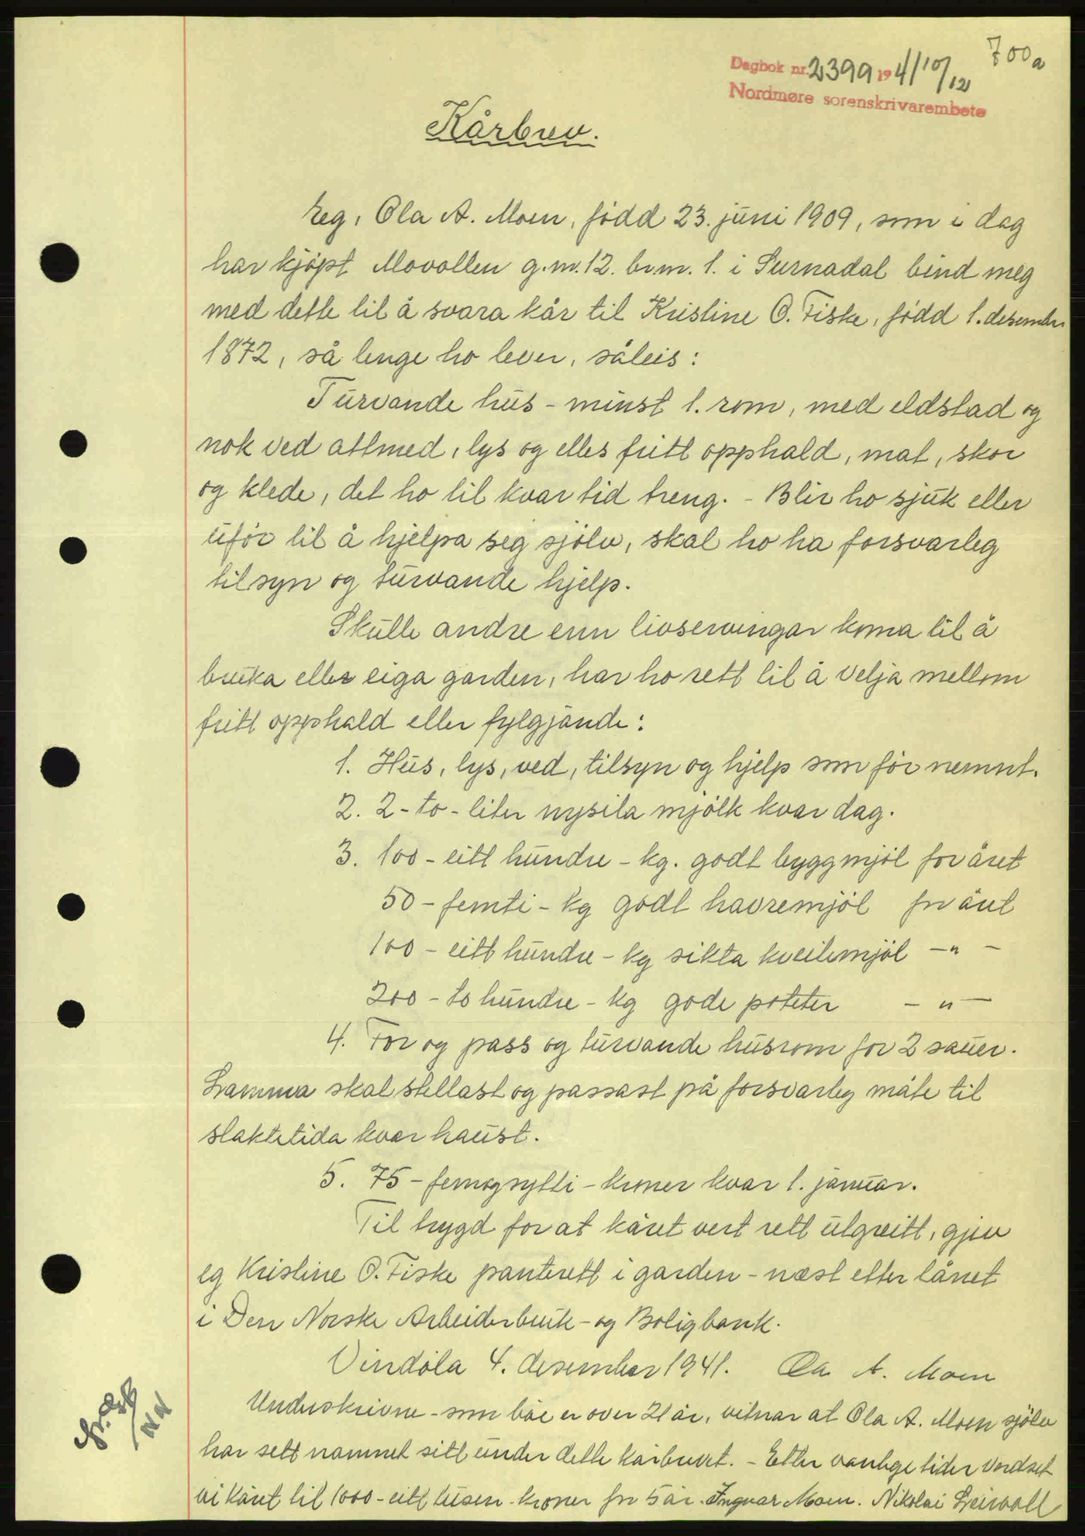 700a
Dagbok nr. 2399 1941 10/12
Nordmøre sorenskrivarembete
Kårbrev.
Eg, Ola A. Moen, född 23. juni 1909, som i dag
har kjöpt Movollen g.nr. 12. br.nr. 1. i Surnadal bind meg
med dette til å svara kår til Kristine O. Fiske, född 1. desember
1872, så lenge ho lever, såleis:
Turvande hus - minst 1. rom, med eldstad og
nok ved attmed, lys og elles fritt opphald, mat, skor
og klede, det ho til kvar tid treng. - Blir ho sjuk eller
uför til å hjelpa seg sjölv, skal ho ha forsvarleg
tilsyn og turvande hjelp.
Skulle andre enn livservingar koma til å
bruka eller eiga garden, har ho rett til å velja mellom
fritt opphald eller fylgjande:
1. Hus, lys, ved, tilsyn og hjelp som för nemnt.
2. 2 - to - liter nysila mjölk kvar dag.
3. 100 - eitt hundre - kg. godt byggmjöl for året
50 - femti - kg godt havremjöl for året
100 - eitt hundre - kg sikta kveitemjöl - " -
200 - to hundre - kg gode poteter - " -
4. For og pass og turvande husrom for 2 sauer.
Lamma skal stellast og passast på forsvarleg måte til
slaktetida kvar haust.
5. 75 - femogsytti - kroner kvar 1. januar.
Til trygd for at kåret vert rett utgreitt, gjev
eg Kristine O. Fiske panterett i garden - næst etter lånet
i Den Norske Arbeiderbruk - og Boligbank.
Vindöla 4. desember 1941. Ola A. Moen
Underskrivne - som båe er over 21 år, vitnar at Ola A. Moen sjölv
har sett namnet sitt under dette kårbrevet. - Etter vanlege tider verdset
vi kåret til 1000 - eitt tusen - kroner for 5 år. Ingvar Moen. Nikolai Leirvoll